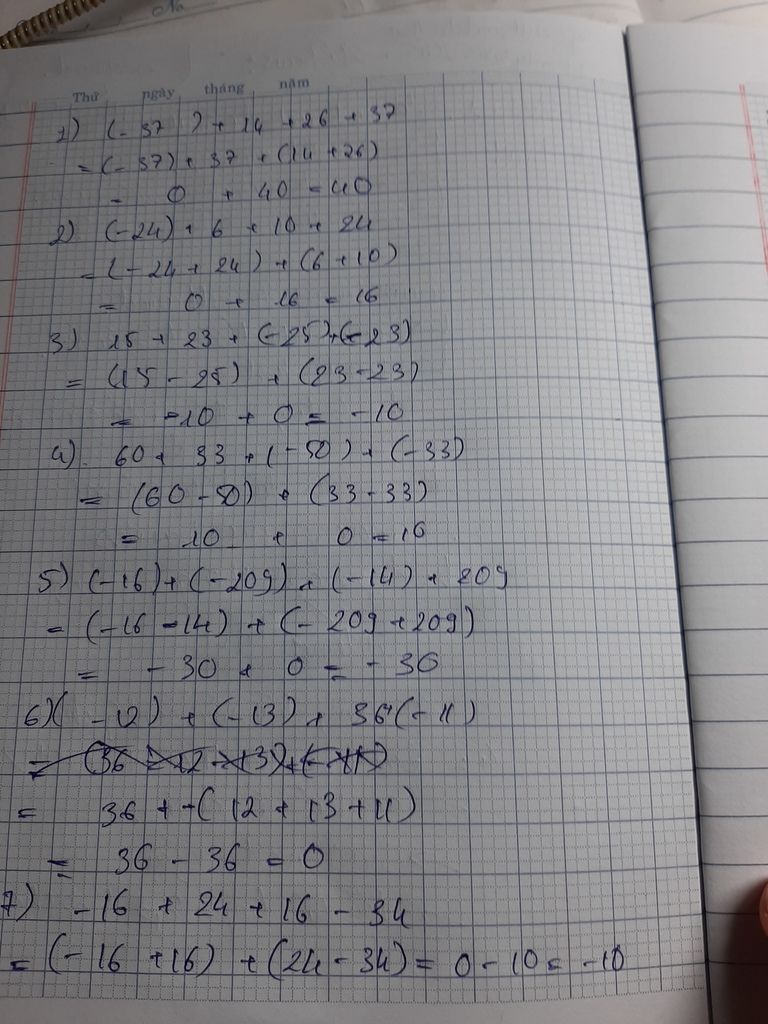 No
Thứ ngày tháng năm
1) (-37) + 14 + 26 + 37
= (-37) + 37 + (14 + 26)
= 0 + 40 = 40
2) (-24) + 6 + 10 + 24
= (-24 + 24) + (6 + 10)
= 0 + 16 = 16
3) 15 + 23 + (-25) + (-23)
= (15 - 25) + (23 - 23)
= -10 + 0 = -10
4) 60 + 33 + (-50) + (-33)
= (60 - 50) + (33 - 33)
= 10 + 0 = 10
5) (-16) + (-209) + (-14) + 209
= (-16 - 14) + (-209 + 209)
= -30 + 0 = -30
6) (-12) + (-13) + 36 + (-11)
= 36 + -(12 + 13 + 11)
= 36 - 36 = 0
7) -16 + 24 + 16 - 34
= (-16 + 16) + (24 - 34) = 0 - 10 = -10